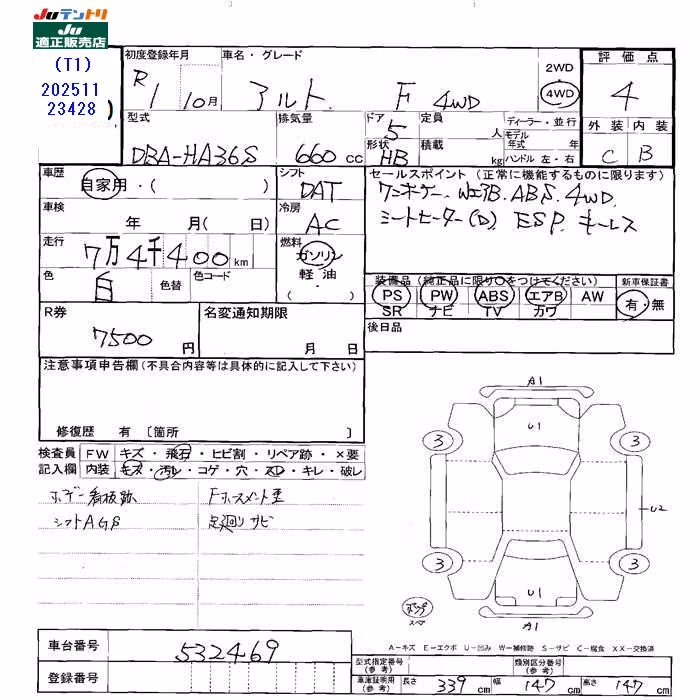 JUテントリ
JU
適正販売店
(T1)
202511
23428 )
初度登録年月
車名・グレード
評価点
R1 10月
アルト F 4WD
2WD
4WD
4
型式
排気量
ドア 5
定員 人
ディーラー・並行
モデル年式 年
外装 内装
DBA-HA36S
660 cc
形状 HB
積載 kg
ハンドル 左・右
C B
車歴
自家用・( )
シフト
DAT
セールスポイント (正常に機能するものに限ります)
車検
年 月( 日)
冷房
AC
WエアB. ABS. 4WD.
シートヒーター(D). ESP. キーレス
走行
7万4千400km
燃料
ガソリン
軽・油
( )
色
白
色替
色コード
装備品 (純正品に限り○をつけてください)
新車保証書
PS PW ABS エアB AW
有・無
SR ナビ TV カワ
R券
7500 円
名変通知期限
月 日
後日品
注意事項申告欄(不具合内容等は具体的に記入して下さい)
修復歴 有 〔箇所 〕
検査員
記入欄
FW キズ・飛石・ヒビ割・リペア跡・×要
内装 キズ・汚レ・コゲ・穴・スレ・キレ・破レ
ボデー看板跡
Fホースメント歪
シフトAGS
足廻りサビ
A1
U1
3 3
U2
3 3
U1
A1
スペア
A-キズ E-エクボ U-凹み W-補修跡 S-サビ C-腐食 XX-交換済
車台番号
532469
登録番号
型式指定番号
(参考)
類別区分番号
(参考)
車庫証明用
(参考)
長さ 339 cm
幅 147 cm
高さ 147 cm